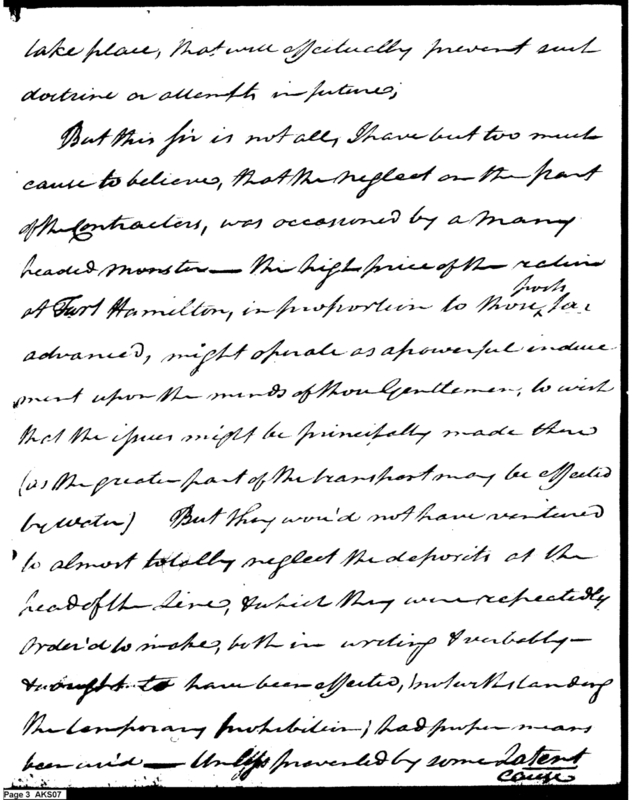 take place, that will effectually prevent such
doctrine or attempts in future;
But this Sir is not all, I have but too much
cause to believe, that the neglect on the part
of the Contractors, was occasioned by a many
headed monster — the high price of the ration
at Fort Hamilton, in proportion to those posts far
advanced, might operate as a powerful induce
ment upon the minds of those Gentlemen, to wish
that the issues might be principally made there
(as the greater part of the transport may be effected
by water) But they wou'd not have ventured
to almost totally neglect the deposits at the
head of the Line, & which they were repeatedly
order'd to make, both in writing & verbally —
& ought to have been effected, (notwithstanding
the temporary prohibition) had proper means
been us'd — Unless prevented by some Latent
cause
Page 3 AKS07